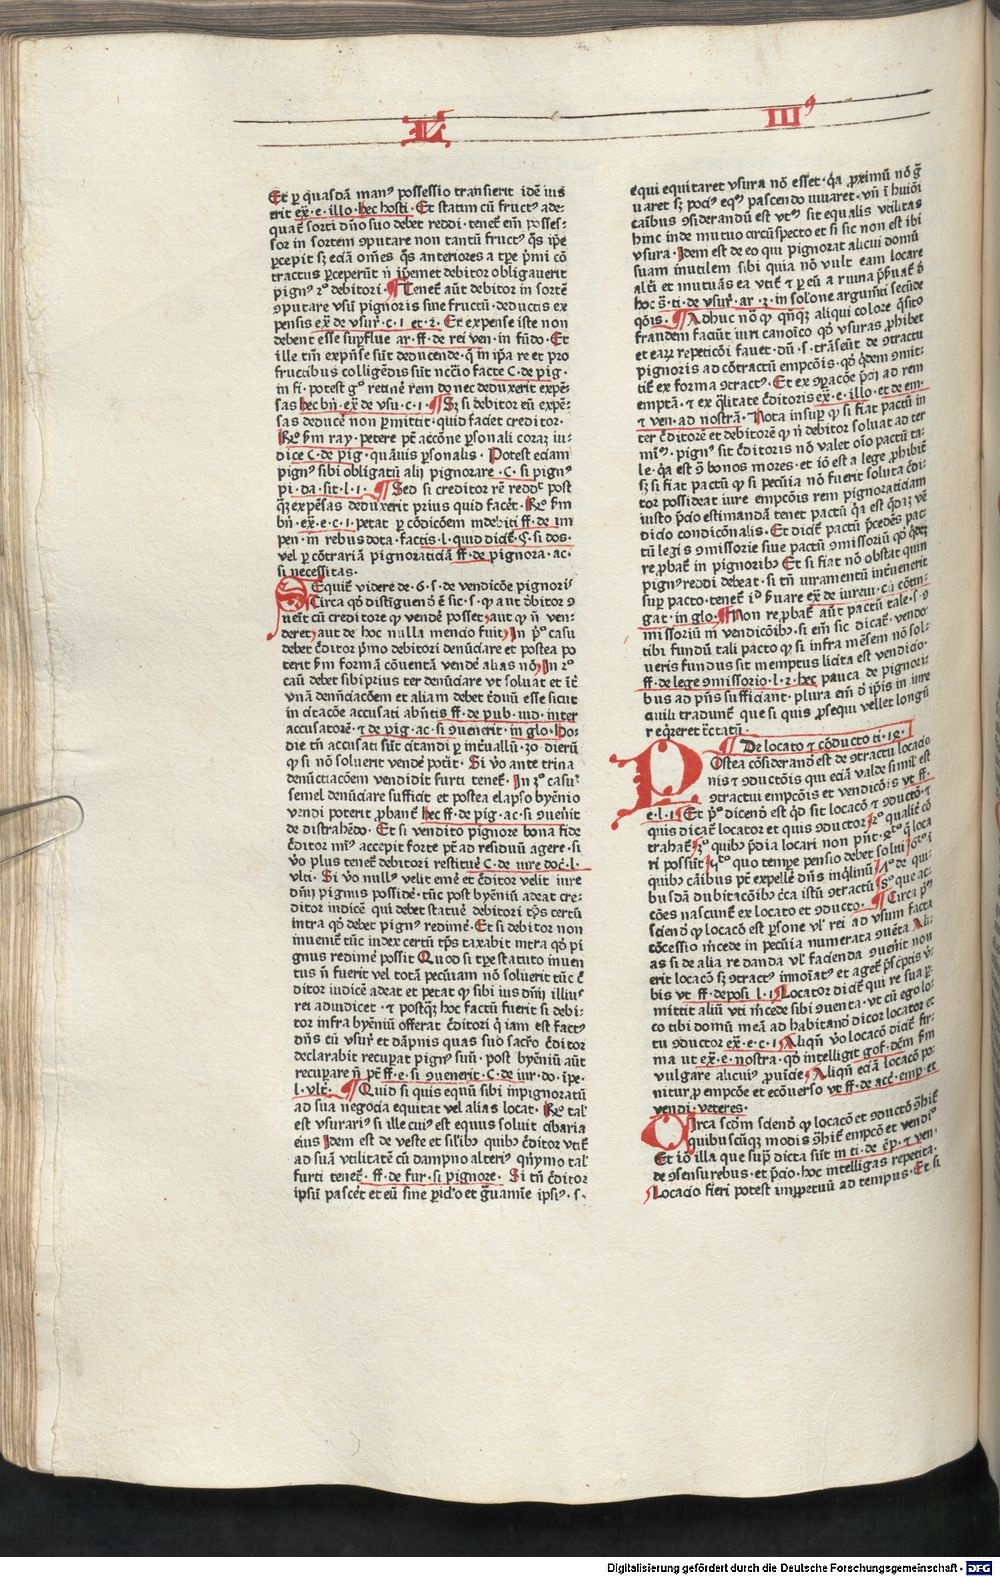 L III⁹
Et ꝑ q̄uasdā manꝰ possessio transierit idē ius
erit ex̄·e·illo·hec hosti·Et statim cū fructꝰ ade-
quat̄ sorti dño suo debet reddi·tenet̄ em̄ posses-
sor in sortem ꝯputare non tantū fructꝰ q̄s ip̄e
ꝑcepit sꝫ eciā om̄es q̄s anteriores a tꝑe p̄mi cō
tractus ꝑceperūt n̄ ip̄emet debitor obligauerit
pignꝰ rº debitori·¶Tenet̄ aūt debitor in sortē
ꝯputare vsū pignoris sine fructū·deductis ex
pensis ex̄ de vsur̄·c·1·et·2·Et expense iste non
debent esse suꝑflue ar·ff·de rei ven·in fūdo·Et
ille tm̄ expn̄se sūt deducende·q̄ in ip̄a re et pro
fructibus colligēdis sūt nccīo facte C·de pig·
in fi·potest gº retinē rem donec deduxerit expē-
sas hec bn̄·ex̄ de vsu·c·1·¶Sꝫ si debitor eū expē-
sas deducē non ꝑmittit·quid faciet creditor·
Rº ẜm ray·petere pt̄ accōne ꝑsonali coraꝫ iu-
dice C·de pig·quāuis ꝑsonalis·Potest eciam
pignꝰ sibi obligatū alij pignorare·C·si pignꝰ
pi·da·sit·l·1·¶Sed si creditor rē reddᶜ post
q̄ꝫ expēsas deduxerit prius quid facet̄·Rº ẜm
bn̄·ex̄·e·c·1·petat ꝑ cōdicōem indebiti ff·de im
pen·in rebus dota·factis·l·quid dicit̄·§·si dos·
vel ꝑ cōtrariā pignoraticiā ff·de pignora·ac·
si necessitas·
SEquit̄ videre de·6·s·de vendicōe pignoris
Circa qº distiguendū ē sic·s·ꝙ aut debitor ꝯ
uēit cū creditore ꝙ vendē posset,aut ꝙ n̄ ven-
deret,aut de hoc nulla mencio fuit,In pº casu
debet c̄ditor p̄mo debitori denūciare et postea po
terit ẜm formā cōuentā vendē alias nō,In rº
caū debet sibi prius ter denūciare vt soluat et it̄
vnā denūciacōem et aliam debet t̄duū esse sicut
in citacōe accusati abn̄tis ff·de pub·iud·inter
accusatorē·⁊ de pig·ac·si ꝯuenerit·in glo·Ho-
die tn̄ accusati sūt citandi ꝑ int̄uallū·30·dierū
ꝙ si nō soluerit vendē potit·Si v̊o ante trina
denūctiacōem vendidit furti tenet̄·In 3º casu
semel denūciare sufficit et postea elapso byēnio
vendi poterit ꝓbanᵗ hec ff·de pig·ac·si ꝯuenit
de distrahēdo·Et si vendito pignore bona fide
c̄ditor minꝰ accepit forte pt̄ ad residuū agere·si
v̊o plus tenet̄ debitori restituē C·de iure doc̄·l·
vlti·Si v̊o nullꝰ velit emē et c̄ditor velit iure
dn̄ij pignus possidē·tūc post byēniū adeat cre-
ditor iudicē qui debet statuē debitori tꝑs certū
intra qº debet pignꝰ redimē·Et si debitor non
inuenit̄ tūc iudex certū tꝑs taxabit intra qº pi
gnus redimē possit Quod si tꝑe statuto inuen
tus n̄ fuerit vel totā pecūiam nō soluerit tūc c̄
ditor iudicē adeat et petat ꝙ sibi ius dn̄ij illius
rei adiudicet·⁊ postq̄ꝫ hoc factū fuerit si debi-
tor infra byēniū offerat c̄ditori q̄ iam est factꝰ
dn̄s cū vsur̄ et dāpnis quas suo sacr̄o c̄ditor
declarabit recuꝑat pignꝰ suū·post byēniū aūt
recuꝑare n̄ pt̄ ff·e·si ꝯuenerit·C·de iur·do·ipe·
l·vlt̄·¶Quid si quis equū sibi inpignoratū
ad sua negocia equitat vel alias locat·Rº tal'
est vsurariꝰ si ille cuiꝰ est equus soluit cibaria
eius Idem est de veste et sil'ibꝰ quibꝰ c̄ditor vtit̄
ad suā vtilitatē cū dampno alteriꝰ qn̄ymo tal'
furti tenet̄·ff·de fur·si pignore·Si tn̄ c̄ditor
ipsū pascēt et eū sine ꝑicl'o et gᵃuamīe ipsiꝰ·s·
equi equitaret vsura nō esset·q̄a ꝓximū nō gᵃ
uaret sꝫ pociꝰ eqꝰ pascendo iuuaret·vn̄ ī huiōi
cāibus ꝯsiderandū est vtꝰ sit equalis vtilitas
hinc inde mutuo circūspecto et si sic non est ibi
vsura·Idem est de eo qui pignorat alicui domū
suam inutilem sibi quia nō vult eam locare
alt̄i et mutuās ea vtit̄ ⁊ ꝑ eū a ruina p̄ẜuat̄ ō
hoc s̄·ti·de vsur̄·ar·2·in sol'one argum̄ti secūde
qōis·¶Adhuc nō ꝙ qn̄qꝫ aliqui colore q̄sito
frandem faciūt iuri canoīco qº vsuras ꝓhibet
et earꝝ repeticōi fauet·dū·s·trāseūt de ꝯtractu
pignoris ad cōtractū empcōis·qº q̄dem ꝯmit-
tit̄ ex forma ꝯtractꝰ·Et ex ꝯpacōe p̄ci ad rem
emptā·⁊ ex q̄litate c̄ditoris ex̄·e·illo·et de em·
⁊ ven·ad nostrā·Nota insuꝑ ꝙ si fiat pactū in
ter c̄ditorē et debitorē ꝙ n̄ debitor soluat ad ter
minū·pignꝰ sit c̄ditoris nō valet oīo pactū ta-
le·q̄a est s̄ bonos mores·et iō est a lege ꝓhibit̄
sꝫ si fiat pactū ꝙ si pecūia nō fuerit soluta c̄di-
tor possideat iure empcōis rem pignoraticiam
iusto p̄cio estimandā tenet pactū q̄a est q̄daꝫ vē
dicio condicōnalis·Et dicit̄ pactū p̄cedēs pac-
tū legis ꝯmissorie siue pactū ꝯmissoriū qº q̄deꝫ
reꝓbat̄ in pignoribꝰ Et si fiat nō obstat quin
pignꝰ reddi debeat·si tn̄ iuramentū int̄uenerit
suꝑ pacto·tenet̄ iº ẜuare ex̄ de iureiu·cū cōtin-
gat·in glo·¶Non reꝓbat̄ aūt pactū tale·s·ꝯ
missoriū in vendicōibꝰ·si em̄ sic dicat̄·vendo
tibi fundū tali pacto ꝙ si infra mēsem nō sol-
ueris fundus sit inemptus licita est vendicio·
ff·de lege ꝯmissorio·l·2·hec pauca de pignori-
bus ad pn̄s sufficiant·plura em̄ ō ip̄is in iure
ciuili tradunt̄ que si quis ꝓsequi vellet longū
reqͥreret tc̄tatū·
¶De locato ⁊ cōducto ti·18·
POstea cōsiderand est de ꝯtractu locacio
nis ⁊ ꝯductōis qui eciā valde simil' est
ꝯtractui empcōis et vendicōis vt ff·
e·l·1·¶Et pº dicenō est q̄d sit locacō ⁊ ꝯductō·⁊
quis dicat̄ locator et quis ꝯductor,2º qualit̄ cō
trahat̄,3º quibꝰ p̄dia locari non pn̄t·4º q̄ loca
ri possūt,5º quo tempe pensio debet solui,6º ī
quibꝰ cāibus pt̄ expellē dn̄s inq̄linū,7º de qui-
busdā dubitacōibꝰ c̄ca istū ꝯtractū,8º que ac-
cōes nascunt̄ ex locato et ꝯducto·¶Circa pᵐ
sciend ꝙ locacō est ꝑsone vl' rei ad vsum facta
cōcessio m̄cede in pecūia numerata ꝯuēta Ali-
as si de alia re danda vl' facienda ꝯuenit non
erit locacō sꝫ ꝯtractꝰ innoīatꝰ et aget̄ p̄sc̄ptis v̄-
bis vt ff·deposi·l·1·Locator dicit̄ qui re sua ꝑ-
mittit aliū vti m̄cede sibi ꝯuenta·vt cū ego lo-
co tibi domū meā ad habitand dicor locator et
tu ꝯductor ex̄·e·c·1·Aliqn̄ v̊o locacō dicit̄ fir-
ma ut ex̄·e·nostra·qº intelligit gof·dcm̄ ẜm
vulgare alicuiꝰ ꝓuīcie,Aliqn̄ eciā locacō po-
nitur ꝓ empcōe et ecōuerso vt ff·de acc̄·emp·et
vendi·veteres·
CIrca scdm̄ sciend ꝙ locacō et ꝯductō ꝯ̄hit̄
quibuscūqꝫ modis ꝯ̄hit̄ empcō et vendiº
Et iō illa que supᵃ dicta sūt in ti·de ēp̄·⁊ ven·
de ꝯsensu rebus·et p̄cio·hoc intelligas repetita·
Locacio fieri potest impꝑetuū ad tempus·Et si
Digitalisierung gefördert durch die Deutsche Forschungsgemeinschaft · DFG